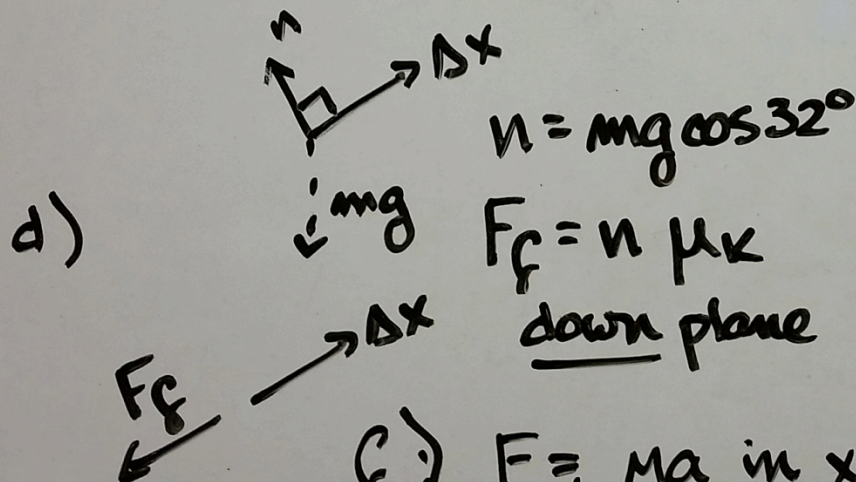 n
Δx
n = mg cos 32°
mg
d)
F_f = n μ_k
down plane
Δx
F_f
F = ma in x